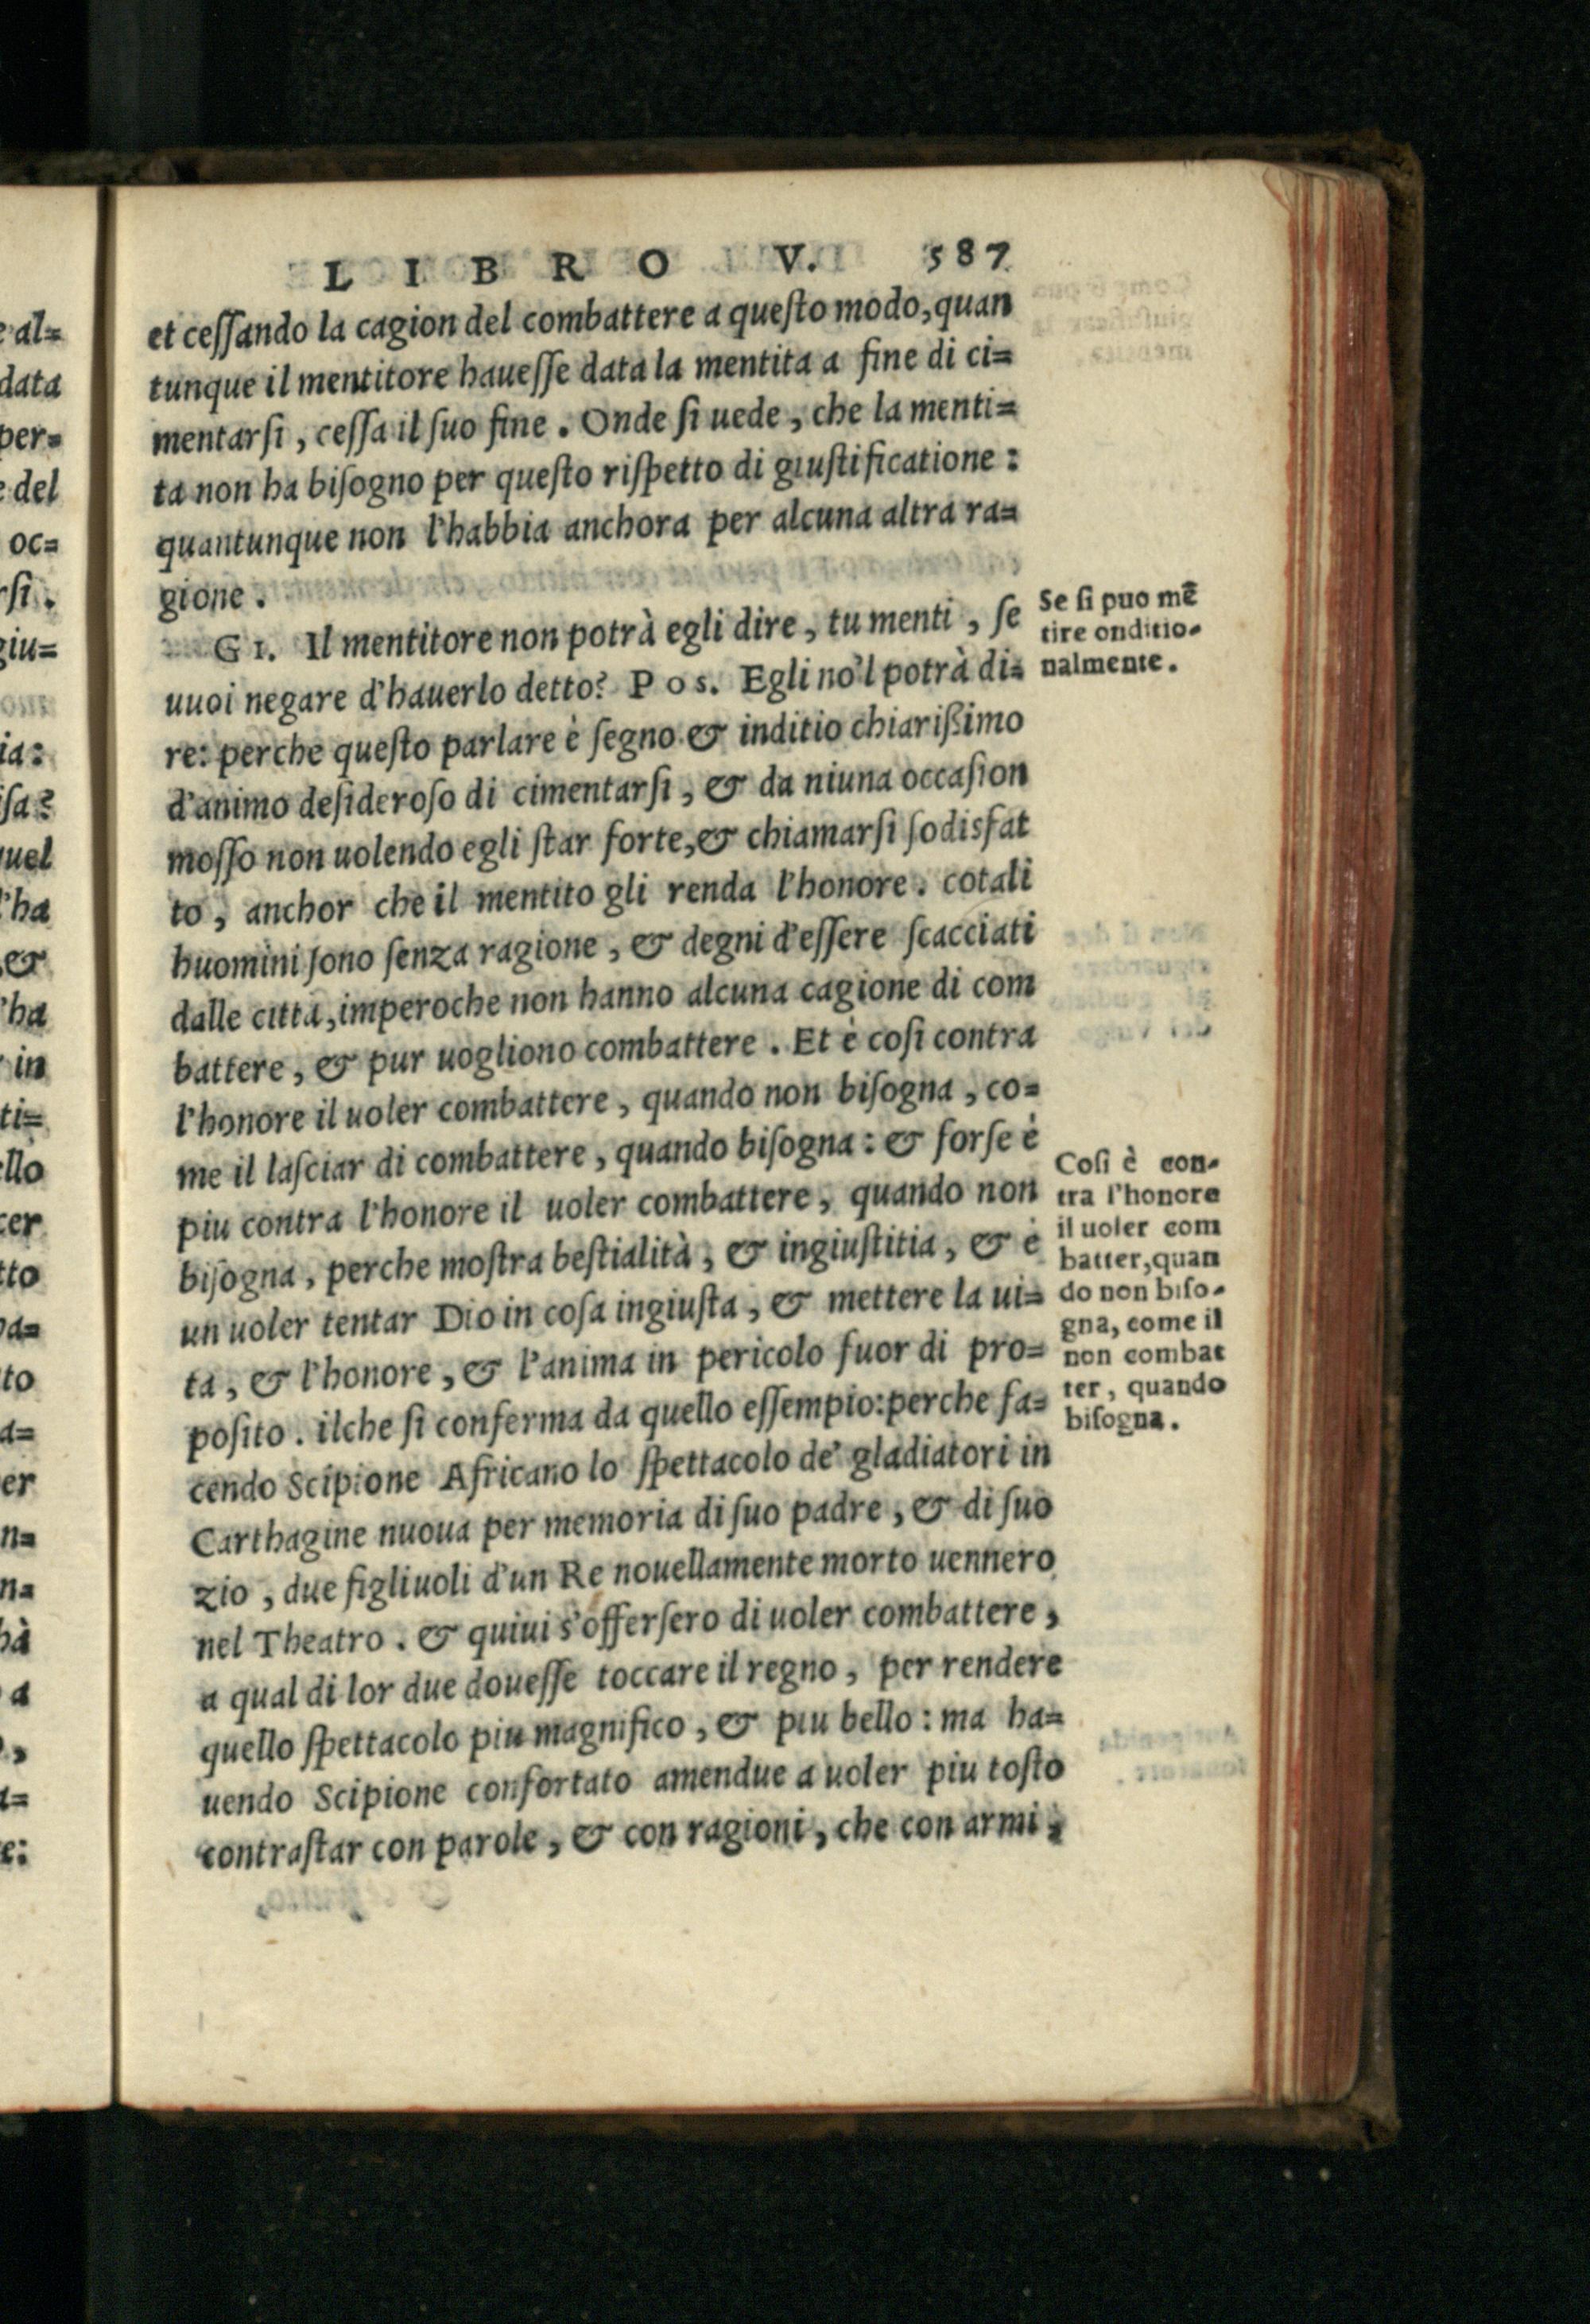 LIBRO V. 587
et ceſſando la cagion del combattere a queſto modo, quan
tunque il mentitore haueſſe data la mentita a fine di ci=
mentarſi, ceſſa il ſuo fine. Onde ſi uede, che la menti=
ta non ha biſogno per queſto riſpetto di giuſtificatione:
quantunque non l'habbia anchora per alcuna altra ra=
gione.
GI. Il mentitore non potrà egli dire, tu menti, ſe
uuoi negare d'hauerlo detto? POS. Egli no'l potrà di=
re: perche queſto parlare è ſegno & inditio chiarißimo
d'animo deſideroſo di cimentarſi, & da niuna occaſion
moſſo non uolendo egli ſtar forte, & chiamarſi ſodisfat
to, anchor che il mentito gli renda l'honore. cotali
huomini ſono ſenza ragione, & degni d'eſſere ſcacciati
dalle città, imperoche non hanno alcuna cagione di com
battere, & pur uogliono combattere. Et è coſi contra
l'honore il uoler combattere, quando non biſogna, co=
me il laſciar di combattere, quando biſogna: & forſe è
piu contra l'honore il uoler combattere, quando non
biſogna, perche moſtra beſtialità, & ingiuſtitia, & è
un uoler tentar Dio in coſa ingiuſta, & mettere la ui=
ta, & l'honore, & l'anima in pericolo fuor di pro=
poſito. ilche ſi conferma da quello eſſempio: perche fa=
cendo Scipione Africano lo ſpettacolo de' gladiatori in
Carthagine nuoua per memoria di ſuo padre, & di ſuo
zio, due figliuoli d'un Re nouellamente morto uennero
nel Theatro. & quiui s'offerſero di uoler combattere,
a qual di lor due doueſſe toccare il regno, per rendere
quello ſpettacolo piu magnifico, & piu bello: ma ha=
uendo Scipione confortato amendue a uoler piu toſto
contraſtar con parole, & con ragioni, che con armi,
Se ſi puo mẽ
tire onditio-
nalmente.
Coſi è con-
tra l'honore
il uoler com
batter, quan
do non biſo-
gna, come il
non combat
ter, quando
biſogna.
al=
data
per=
del
oc=
rſi.
giu=
ia:
ſa?
uel
l'ha
&
'ha
in
ti=
ello
cer
tto
a=
to
a=
er
n=
n=
hà
a
,
a=
e: